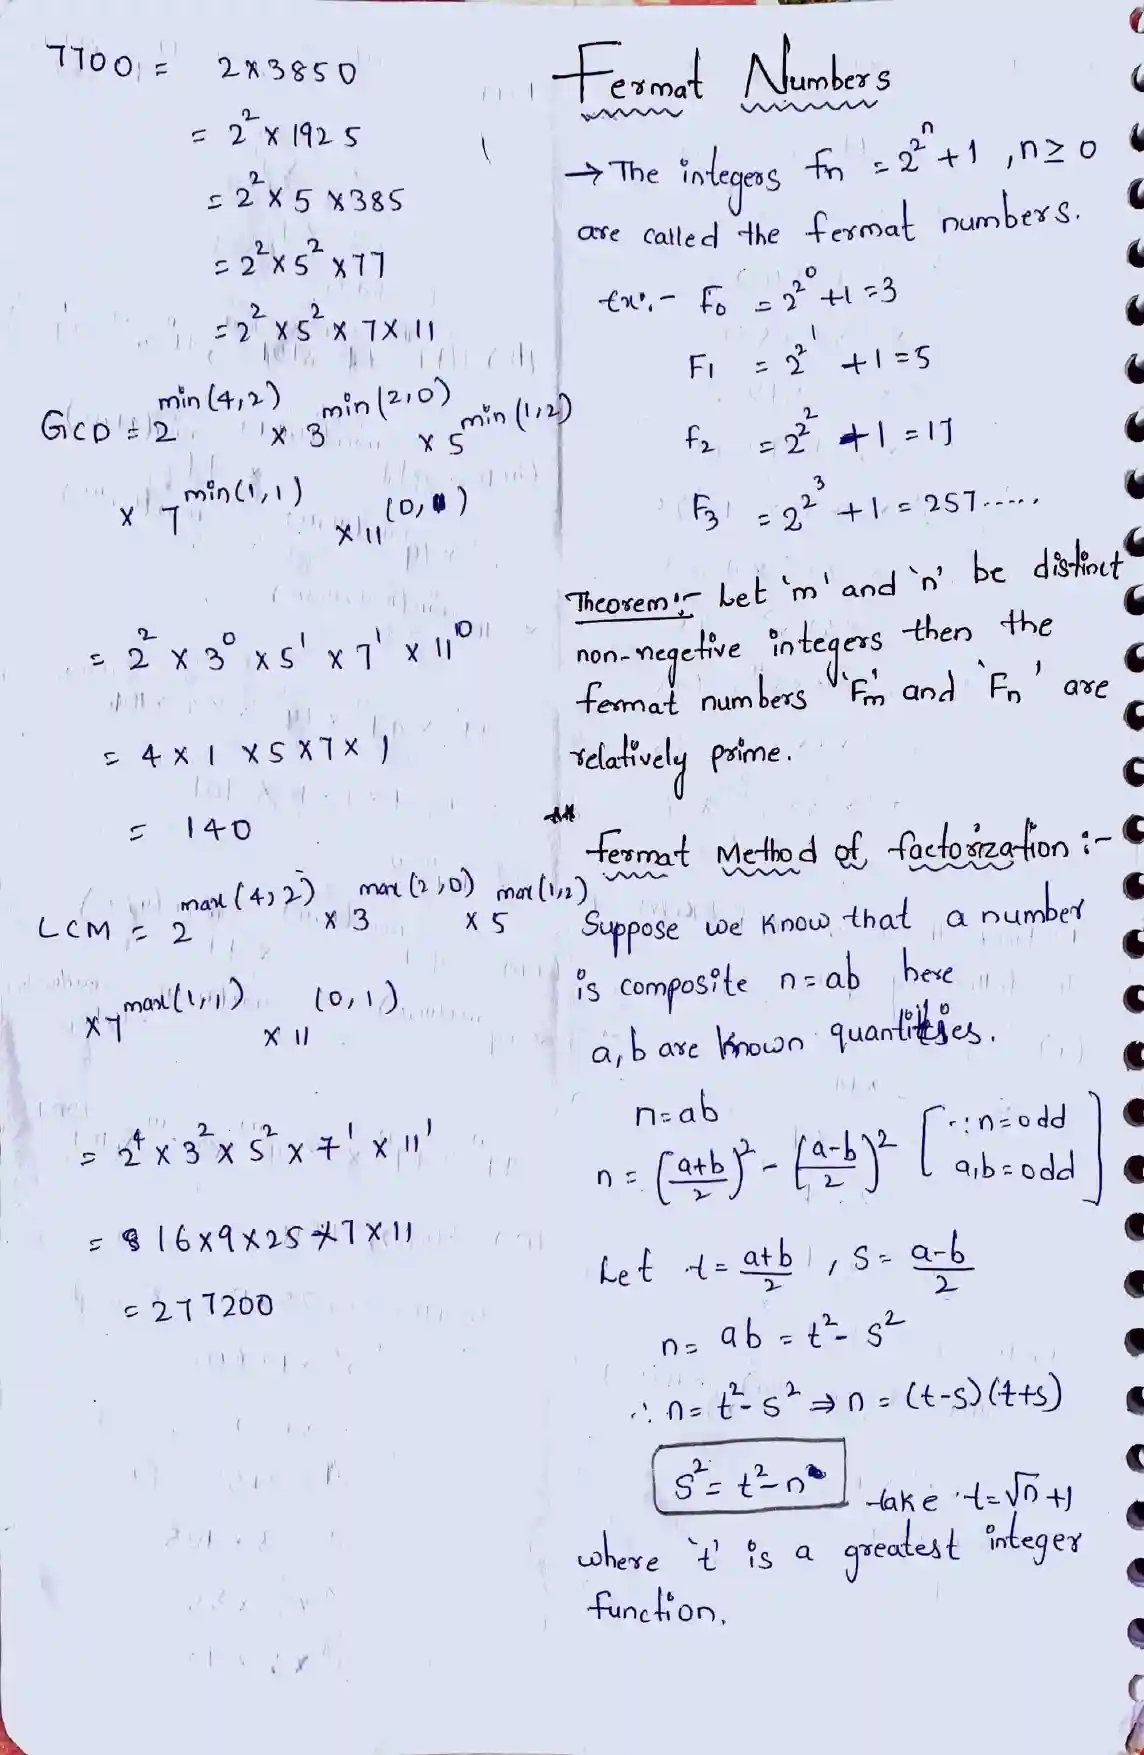 7700 = 2×3850
= 2² × 1925
= 2² × 5 × 385
= 2² × 5² × 77
= 2² × 5² × 7 × 11
GCD = 2^min(4,2) × 3^min(2,0) × 5^min(1,2)
× 7^min(1,1) × 11^(0,1)
= 2² × 3⁰ × 5¹ × 7¹ × 11⁰
= 4 × 1 × 5 × 7 × 1
= 140
LCM = 2^max(4,2) × 3^max(2,0) × 5^max(1,2)
× 7^max(1,1) × 11^(0,1)
= 2⁴ × 3² × 5² × 7¹ × 11¹
= 16×9×25×7×11
= 277200
Fermat Numbers
→ The integers fn = 2^2^n + 1 , n ≥ 0
are called the fermat numbers.
Ex:- F₀ = 2^2^0 + 1 = 3
F₁ = 2^2^1 + 1 = 5
f₂ = 2^2^2 + 1 = 17
F₃ = 2^2^3 + 1 = 257.....
Theorem:- Let 'm' and 'n' be distinct
non-negetive integers then the
fermat numbers 'Fm' and 'Fn' are
relatively prime.
** fermat Method of factorization :-
Suppose we know that a number
is composite n=ab here
a, b are known quantities.
n=ab
n = (a+b/2)² - (a-b/2)² [∵ n=odd
a,b=odd]
Let t = a+b/2 , s = a-b/2
n = ab = t² - s²
∴ n = t² - s² ⇒ n = (t-s)(t+s)
s² = t² - n take t = √n + 1
where 't' is a greatest integer
function.